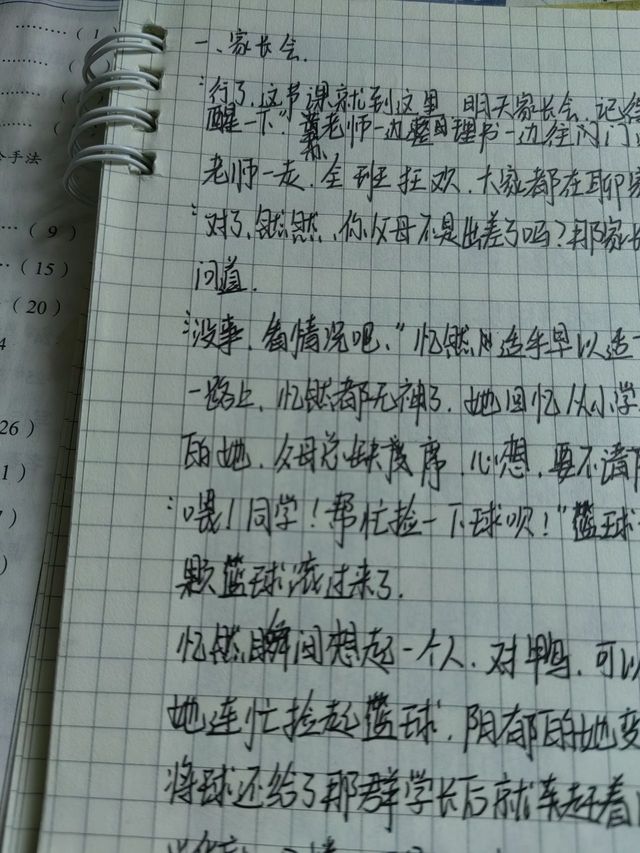 一、家长会.
"行了,这节课就到这里 明天家长会,记
醒一下"老师一边整理书一边往门门
老师一走.全班狂欢.大家都在聊
"对了,然然,你父母不是出差了吗?那家长
问道.
"没事,看情况吧、"忆然 早以
一路上,忆然都无神了.她回忆从小学
的她.父母总缺席,心想,要不请
"喂!同学!帮忙捡一下球呗!"篮球
颗篮球滚过来了.
忆然瞬间想起一个人.对 可以
她连忙捡起篮球.阴郁的她变
将球还给了那群学长后就 赶着
(1
(9)
(15)
(20)
4
26)
1)
)
)
手法